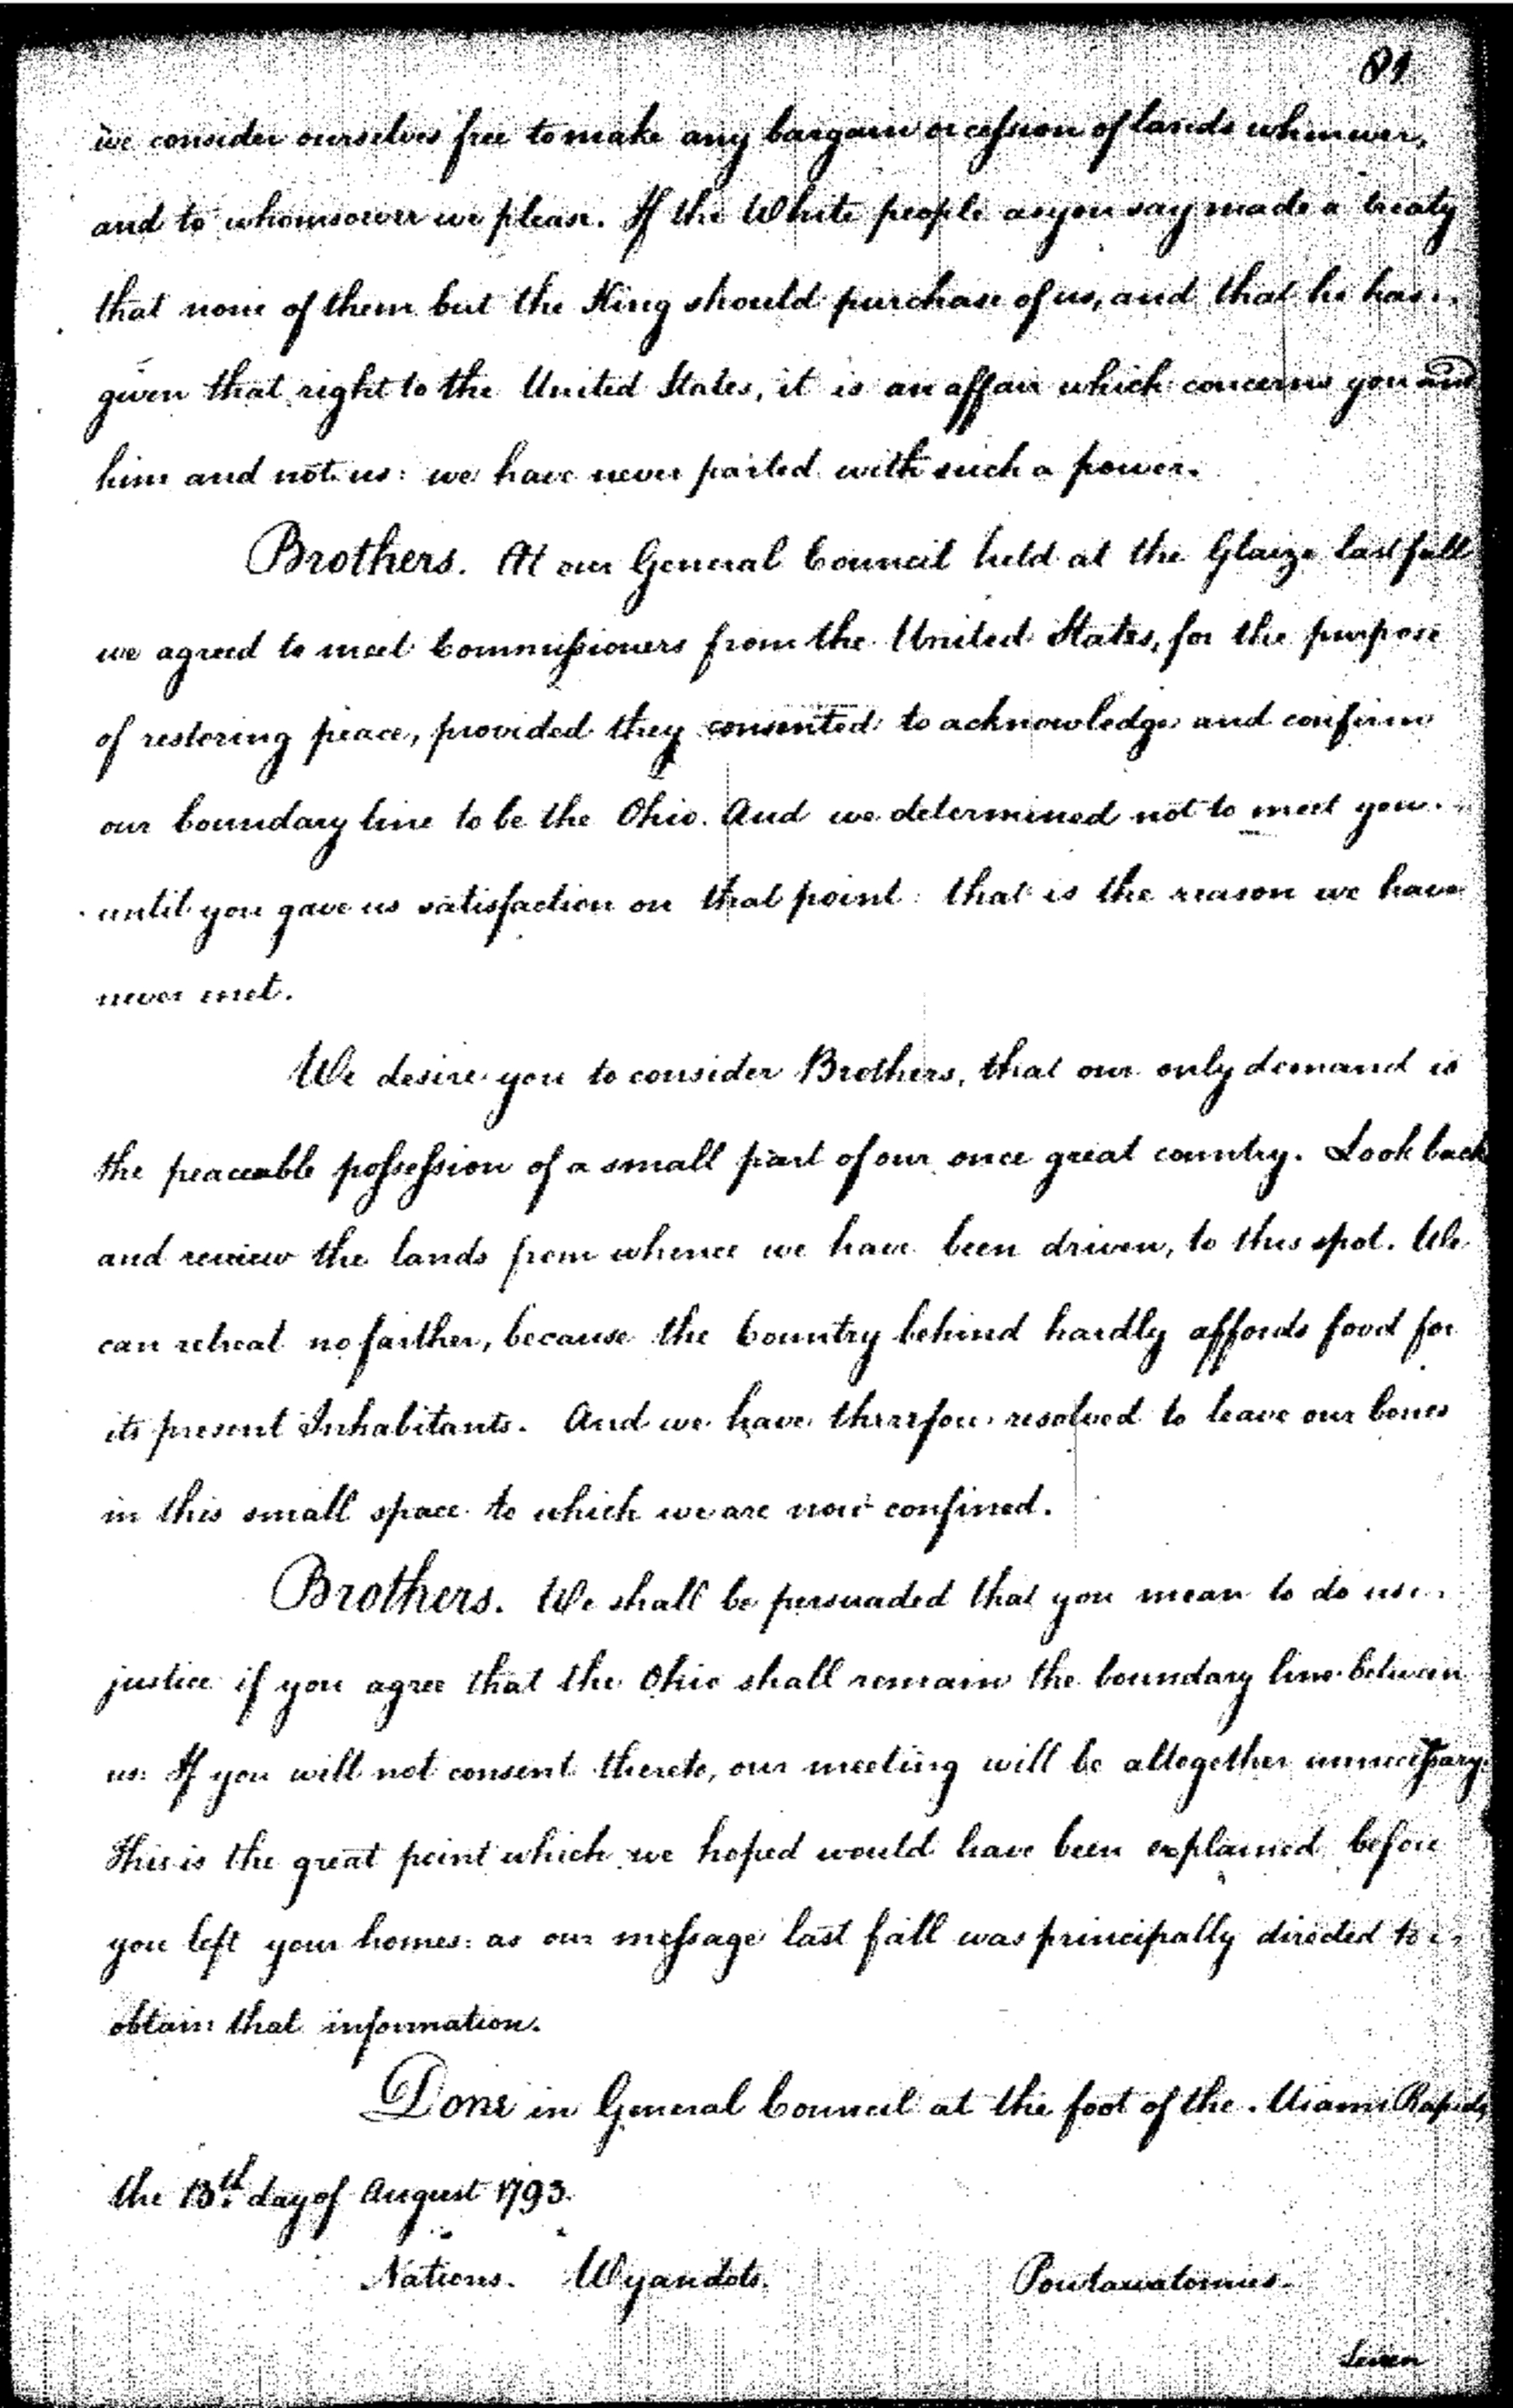 81
we consider ourselves free to make any bargain or cession of lands whenever,
and to whomsoever we please. If the White people as you say made a treaty
that none of them but the King should purchase of us, and that he has
given that right to the United States, it is an affair which concerns you and
him and not us: we have never parted with such a power.
Brothers. At our General Council held at the Glaize last fall
we agreed to meet Commissioners from the United States, for the purpose
of restoring peace, provided they consented to acknowledge and confirm
our boundary line to be the Ohio. And we determined not to meet you
until you gave us satisfaction on that point: that is the reason we have
never met.
We desire you to consider Brothers, that our only demand is
the peaceable possession of a small part of our once great country. Look back
and review the lands from whence we have been driven, to this spot. We
can retreat no farther, because the Country behind hardly affords food for
its present Inhabitants. And we have therefore resolved to leave our bones
in this small space to which we are now confined.
Brothers. We shall be persuaded that you mean to do us
justice if you agree that the Ohio shall remain the boundary line between
us: If you will not consent thereto, our meeting will be altogether unnecessary.
This is the great point which we hoped would have been explained before
you left your homes: as our message last fall was principally directed to
obtain that information.
Done in General Council at the foot of the Miami Rapids
the 13th day of August 1793.
Nations. Wyandots. Poutawatomies.
Seven